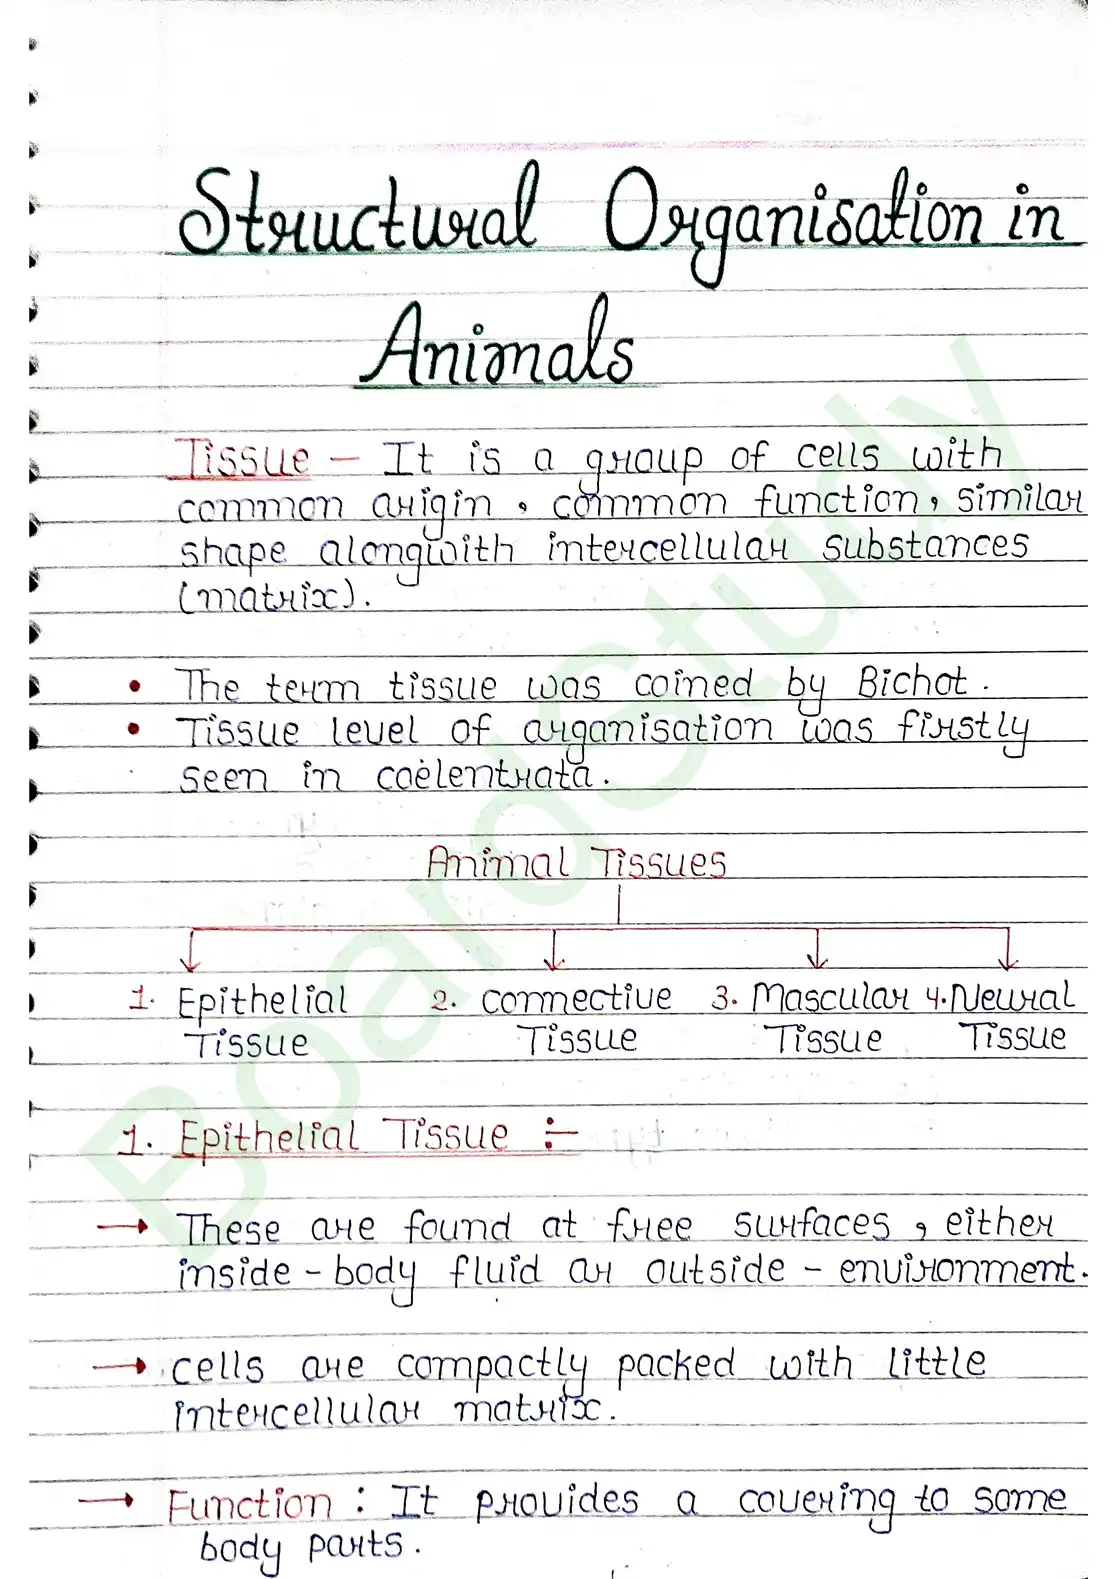 Structural Organisation in
Animals
Tissue – It is a group of cells with
common origin, common function, similar
shape alongwith intercellular substances
(matrix).
• The term tissue was coined by Bichat.
• Tissue level of organisation was firstly
seen in coelentrata.
Animal Tissues
1. Epithelial 2. connective 3. Mascular 4. Neural
Tissue Tissue Tissue Tissue
1. Epithelial Tissue :–
→ These are found at free surfaces, either
inside - body fluid or outside - environment.
→ cells are compactly packed with little
intercellular matrix.
→ Function : It provides a covering to some
body parts.
BoardStudy